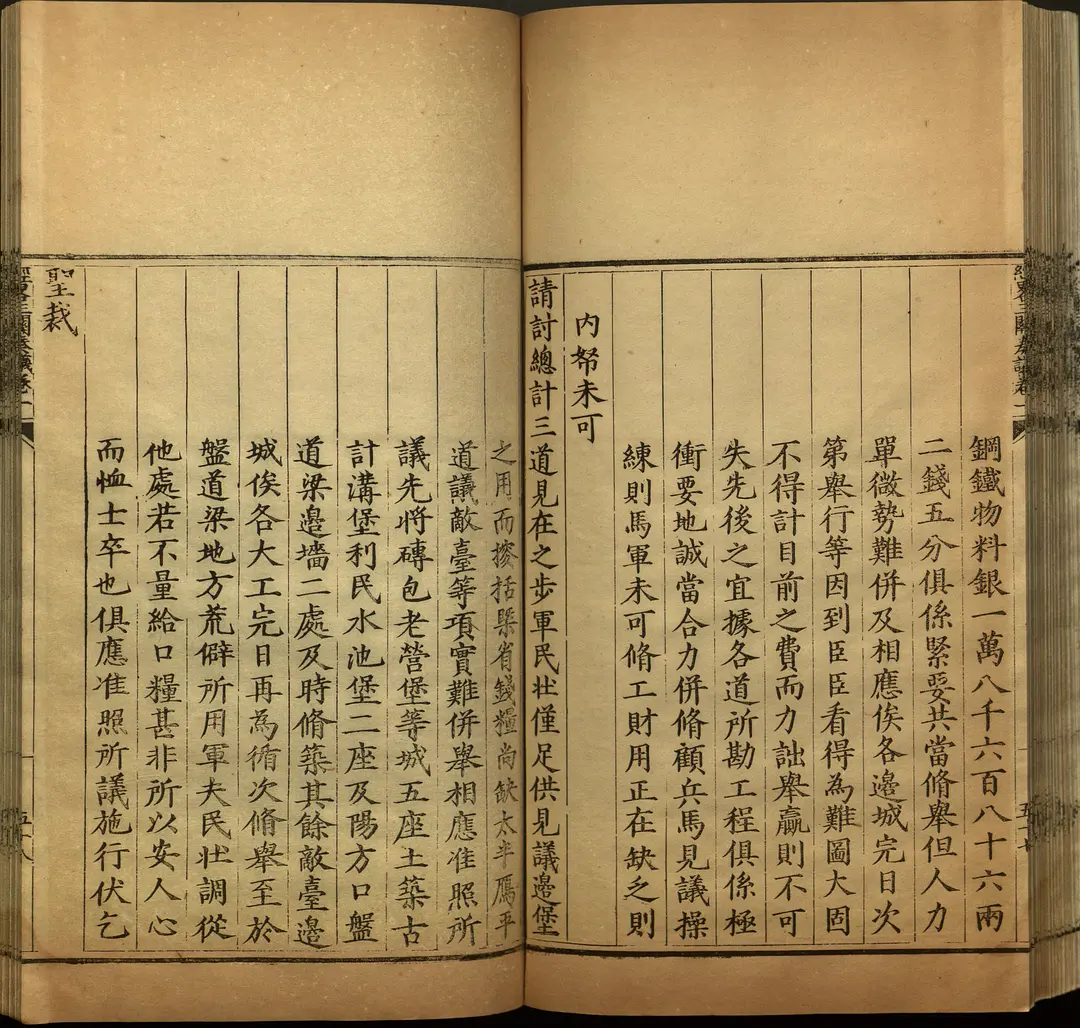 鋼鐵物料銀一萬八千六百八十六兩
二錢五分俱係緊要共當脩舉但人力
單微勢難併及相應俟各邊城完日次
第舉行等因到臣臣看得為難圖大固
不得計目前之費而力詘舉贏則不可
失先後之宜據各道所勘工程俱係極
衝要地誠當合力併脩顧兵馬見議操
練則馬軍未可脩工財用正在缺乏則
內帑未可
請討總計三道見在之步軍民壯僅足供見議邊堡
之用而搜括槩省錢糧尚缺太半鴈平
道議敵臺等項實難併舉相應准照所
議先將磚包老營堡等城五座土築古
計溝堡利民水池堡二座及陽方口盤
道梁邊墻二處及時脩築其餘敵臺邊
城俟各大工完日再為循次脩舉至於
盤道梁地方荒僻所用軍夫民壯調從
他處若不量給口糧甚非所以安人心
而恤士卒也俱應准照所議施行伏乞
聖裁